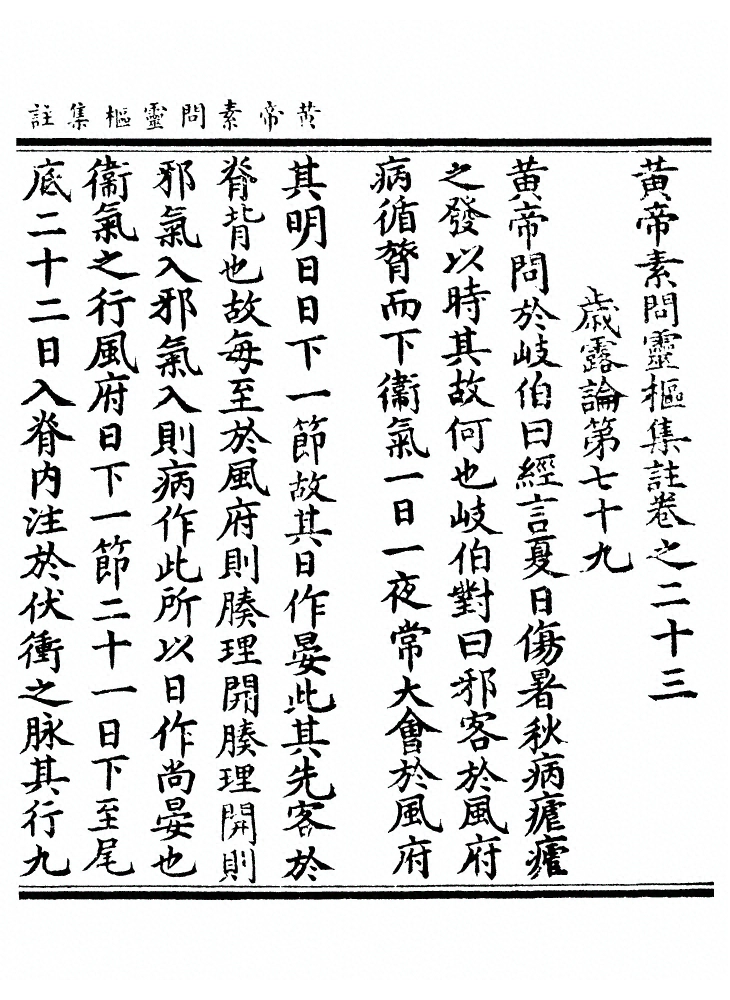 黄帝素問靈樞集註
黄帝素問靈樞集註卷之二十三
歲露論第七十九
黄帝問於岐伯曰經言夏日傷暑秋病瘧瘧
之發以時其故何也岐伯對曰邪客於風府
病循膂而下衛氣一日一夜常大會於風府
其明日日下一節故其日作晏此其先客於
脊背也故每至於風府則腠理開腠理開則
邪氣入邪氣入則病作此所以日作尚晏也
衛氣之行風府日下一節二十一日下至尾
底二十二日入脊内注於伏衝之脉其行九